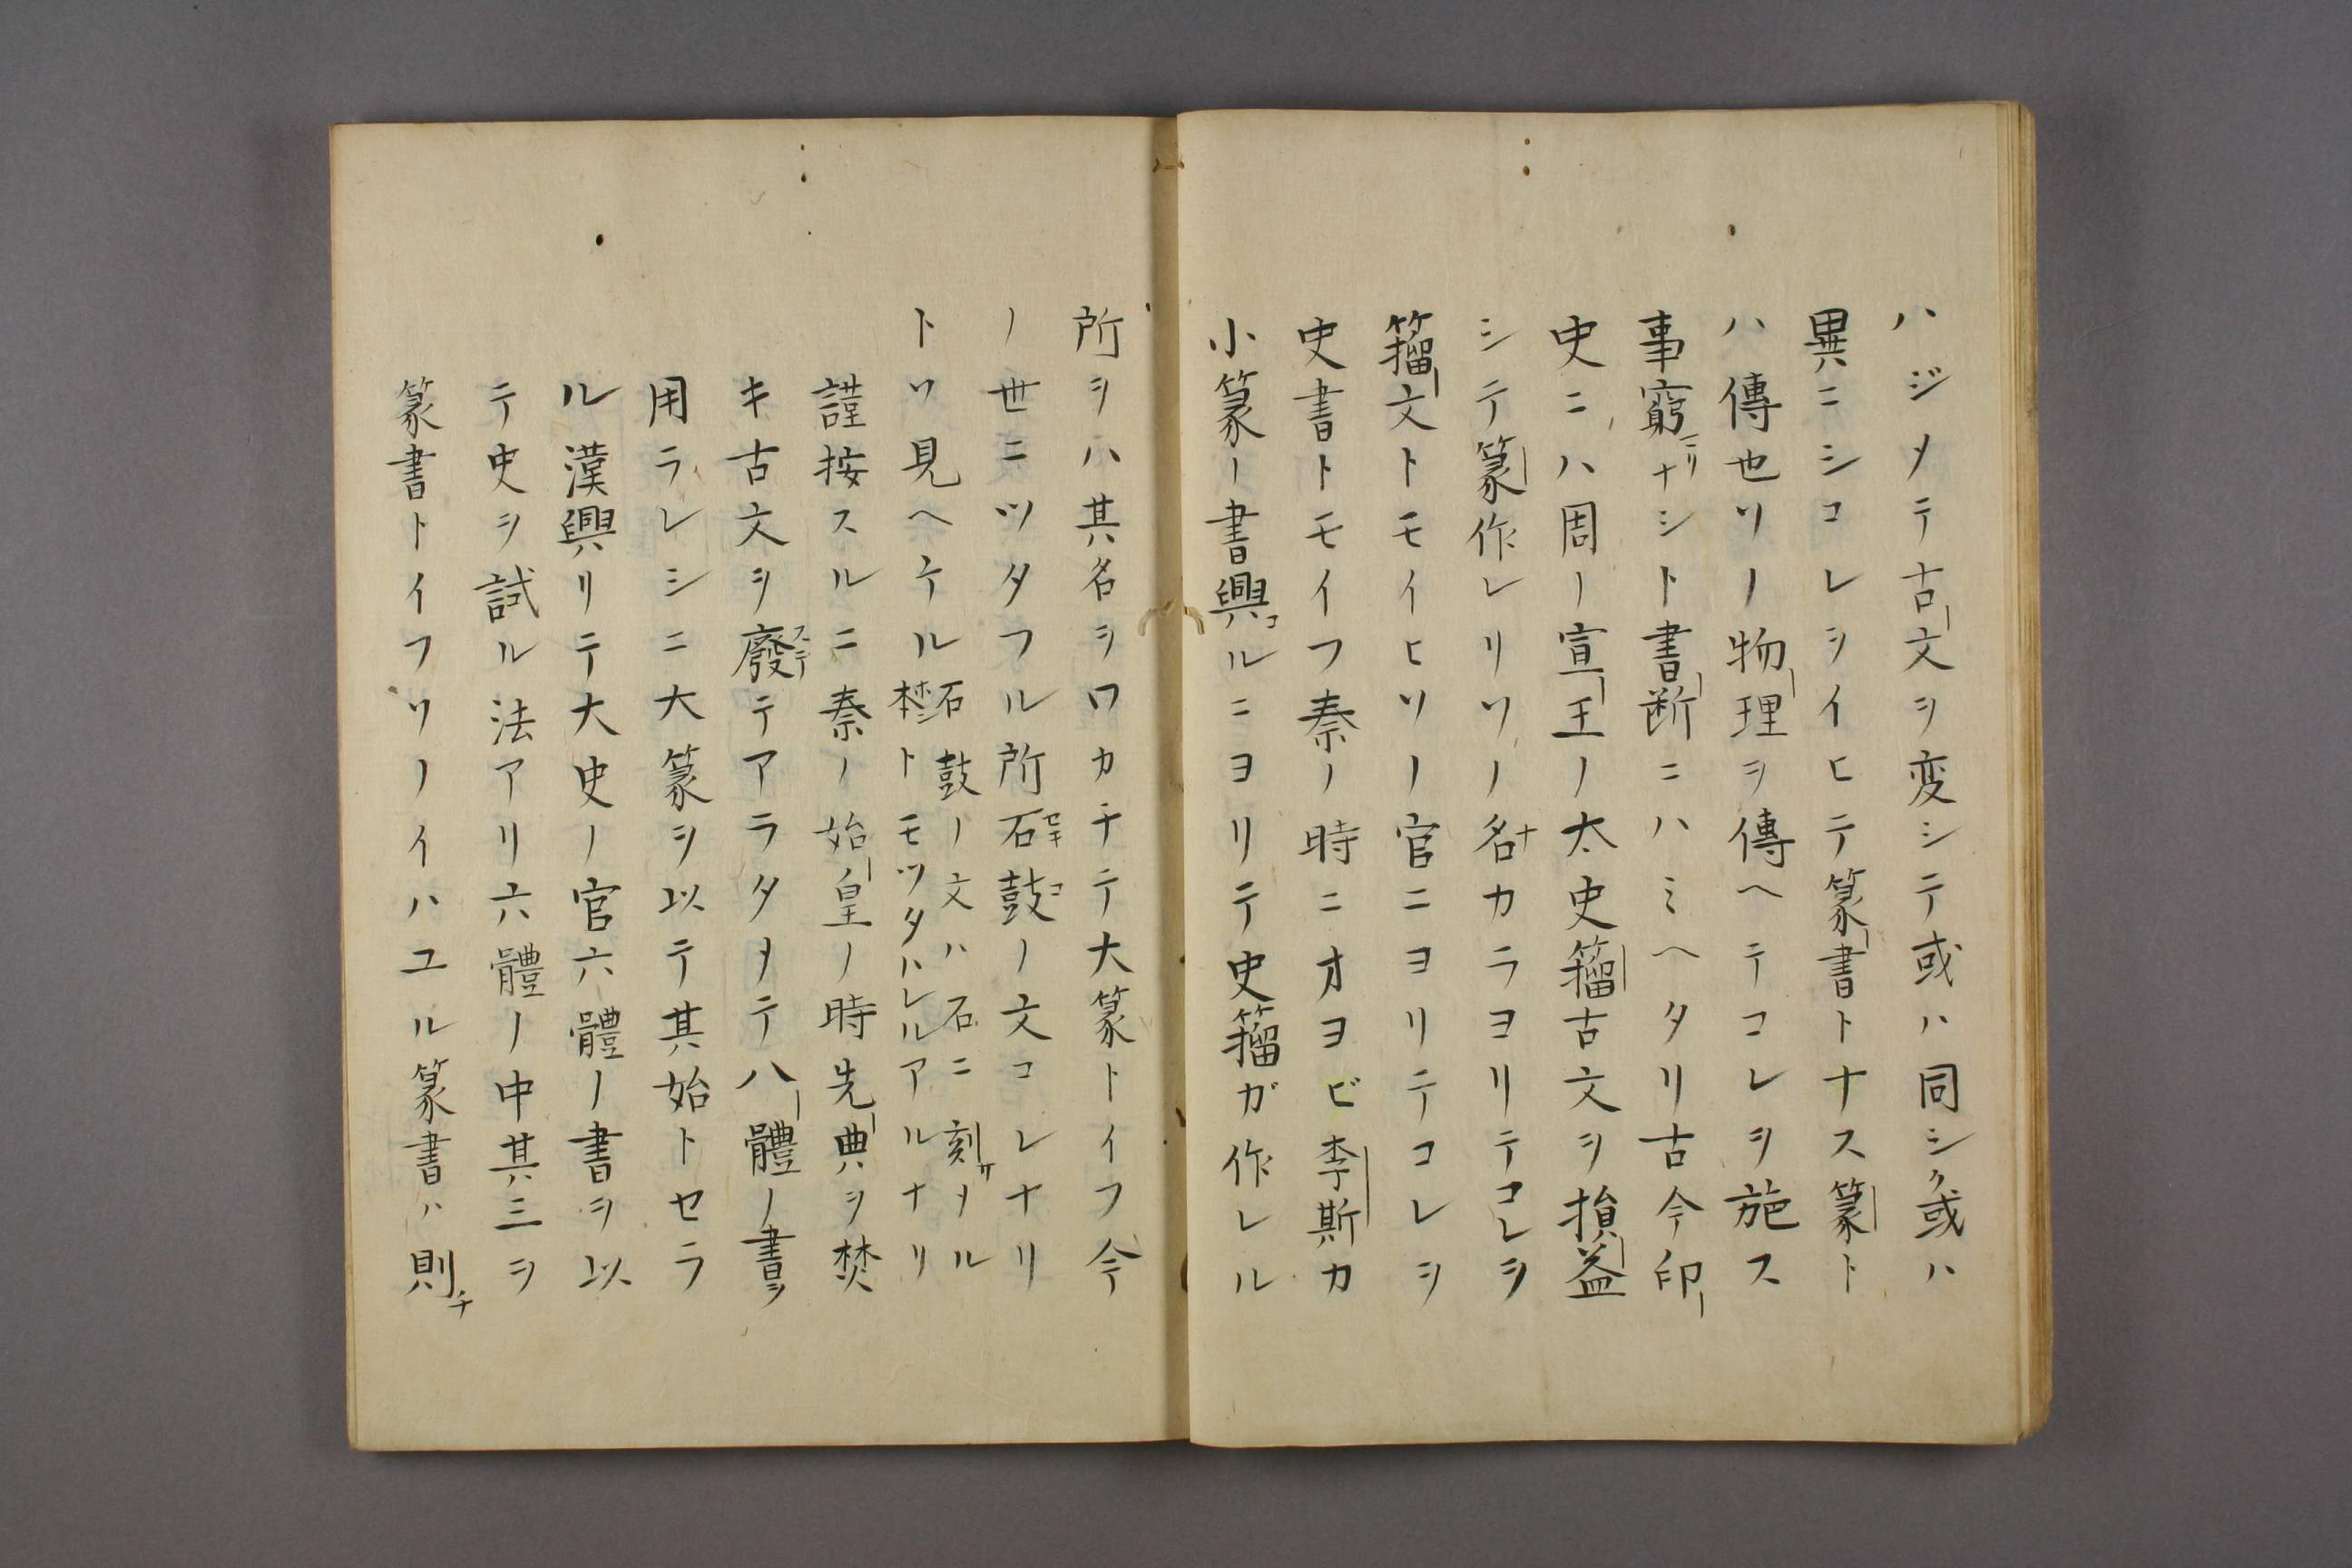 ハジメテ古文ヲ変シテ或ハ同シク或ハ
異ニシコレヲイヒテ篆書トナス篆ト
ハ傳也ソノ物理ヲ傳ヘテコレヲ施ス
事窮リナシト書断ニハミヘタリ古今印
史ニハ周ノ宣王ノ太史籀古文ヲ損益
シテ篆作レリソノ名カラヨリテコレヲ
籀文トモイヒソノ官ニヨリテコレヲ
史書トモイフ秦ノ時ニオヨビ李斯カ
小篆ノ書興ルニヨリテ史籀ガ作レル
所ヲハ其名ヲワカチテ大篆トイフ今
ノ世ニツタフル所石鼓ノ文コレナリ
トソ見ヘケル石鼓ノ文ハ石ニ刻メル
トモツタハレルアルナリ
謹按スルニ秦ノ始皇ノ時先典ヲ焚
キ古文ヲ廢テアラタメテ八體ノ書ヲ
用ラレシニ大篆ヲ以テ其始トセラ
ル漢興リテ大史ノ官六體ノ書ヲ以
テ史ヲ試ル法アリ六體ノ中其三ヲ
篆書トイフソノイハユル篆書ハ則チ